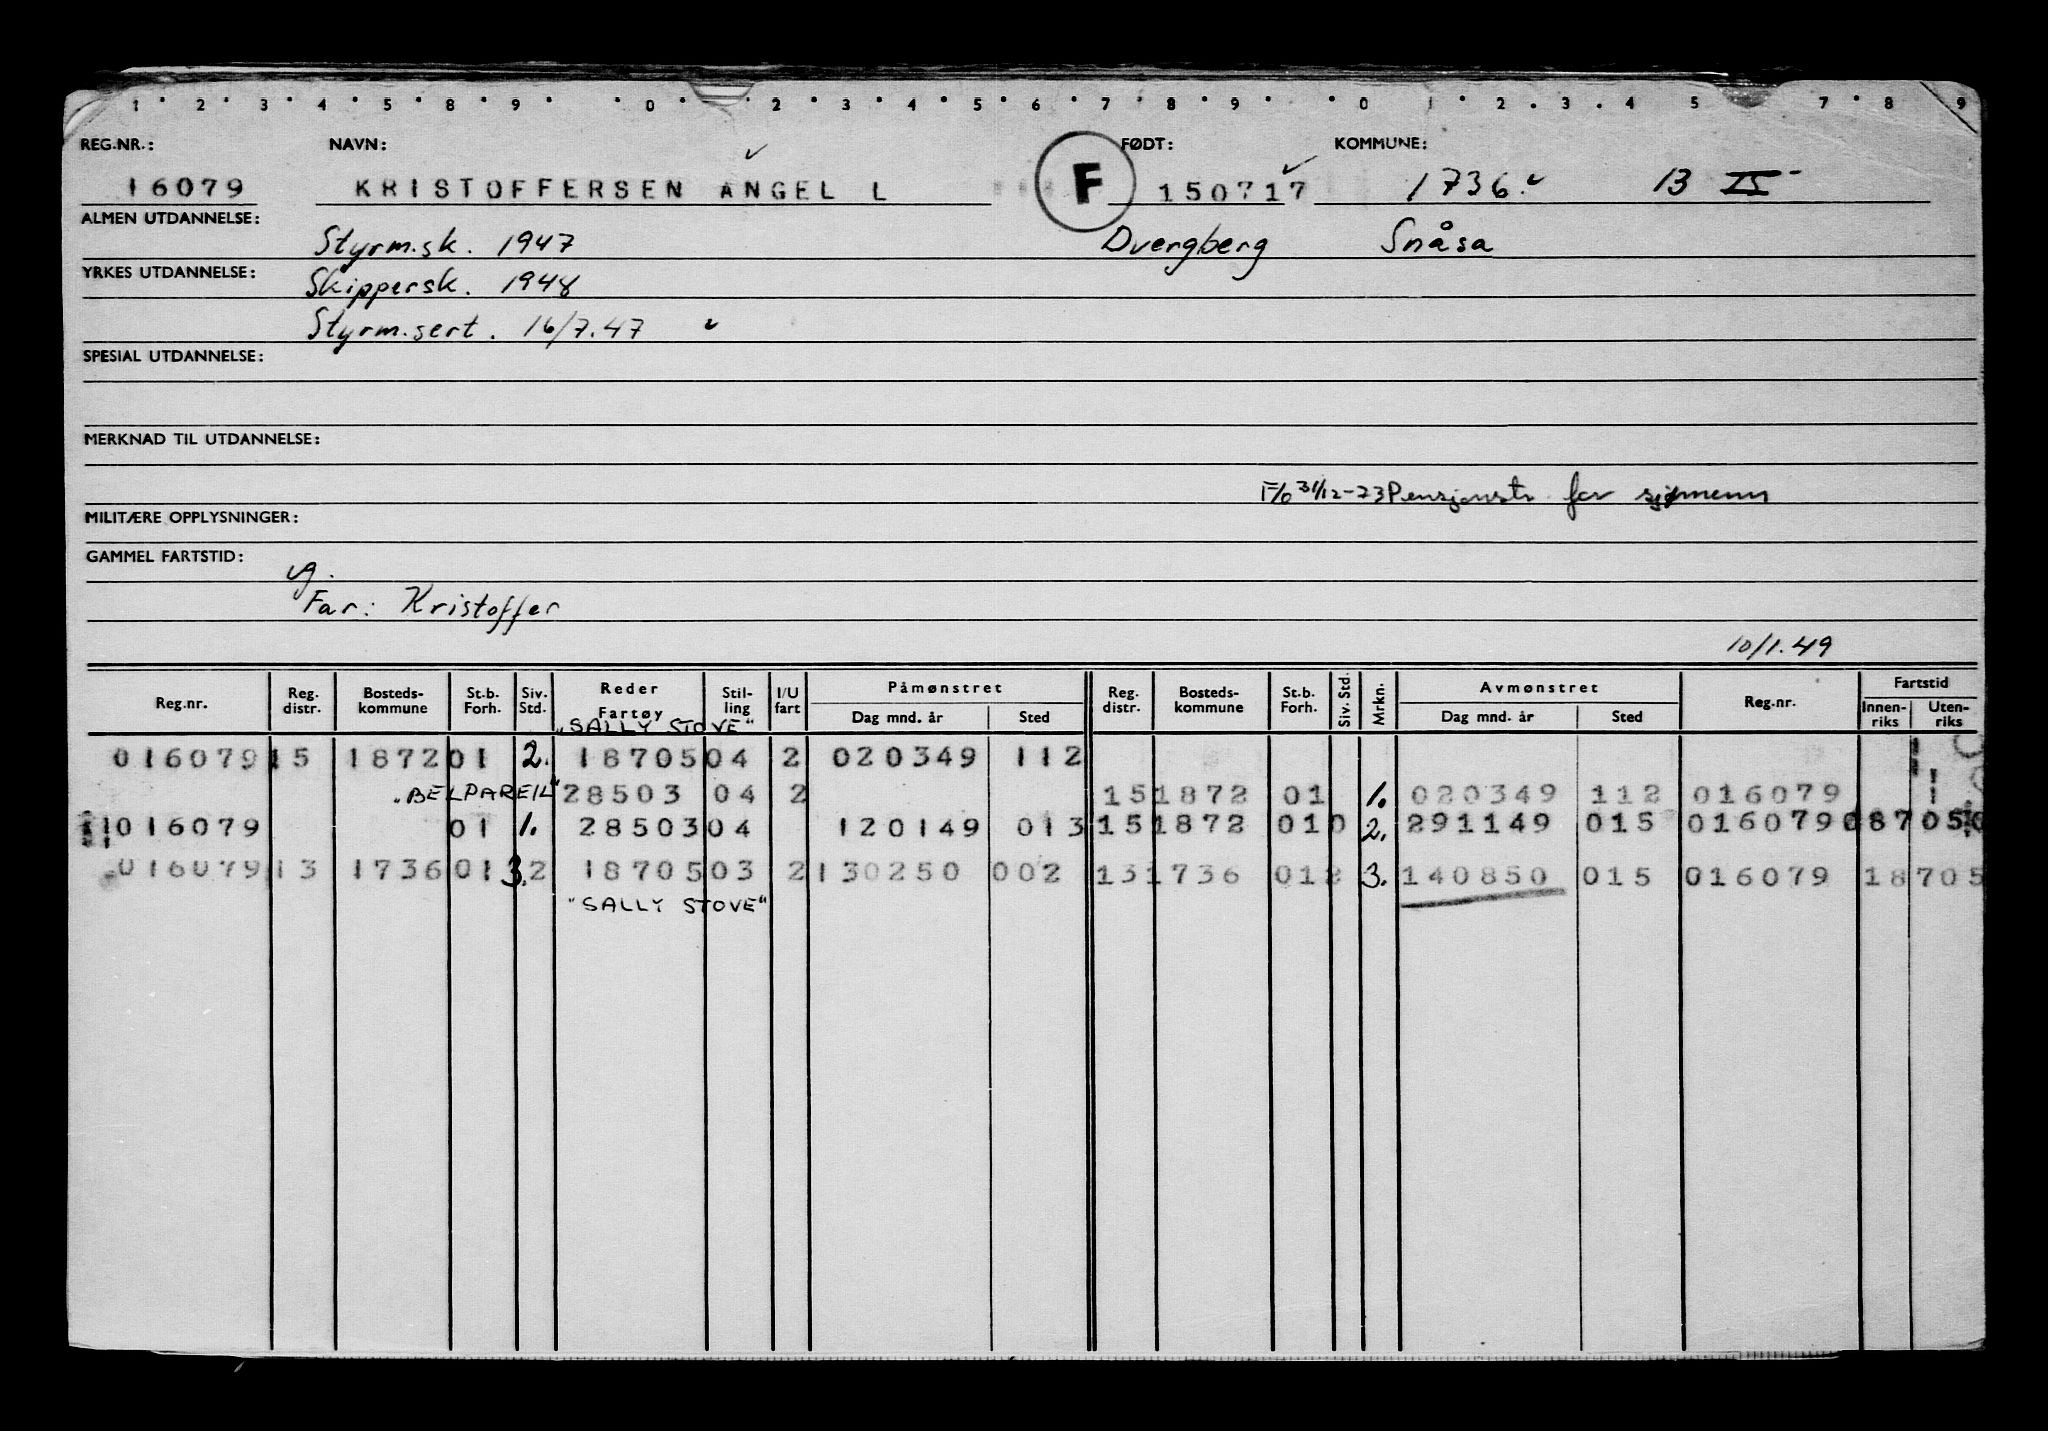 1 2 3 4 5 8 9 0 2 3 4 5 6 7 8 9 0 1 2 3 4 5 7 8 9
REG.NR.: NAVN: FØDT: KOMMUNE:
16079 KRISTOFFERSEN ANGEL L F 150717 1736 13
ALMEN UTDANNELSE: Styrm.sk. 1947 Dvergberg Snåsa
YRKES UTDANNELSE: Skippersk. 1948
Styrm.sert. 16/7.47
SPESIAL UTDANNELSE:
MERKNAD TIL UTDANNELSE:
F/o 31/12-73 Pensjonstr. for sjømenn
MILITÆRE OPPLYSNINGER:
GAMMEL FARTSTID: ug.
Far: Kristoffer
10/1.49
Reg.nr. Reg. distr. Bosteds-kommune St.b. Forh. Siv. Std. Reder Fartøy Stil-ling I/U fart Påmønstret Dag mnd. år Sted Reg. distr. Bosteds-kommune St.b. Forh. Siv. Std. Mrkn. Avmønstret Dag mnd. år Sted Reg.nr. Fartstid Innen-riks Uten-riks
"SALLY STOVE"
016079 15 1872 01 2. 18705 04 2 020349 112
"BELPAREIL" 28503 04 2 15 1872 01 1. 020349 112 016079
016079 01 1. 28503 04 120149 013 15 1872 010 2. 291149 015 016079 18705
016079 13 1736 01 3. 2 18705 03 2 130250 002 13 1736 012 3. 140850 015 016079 18705
"SALLY STOVE"